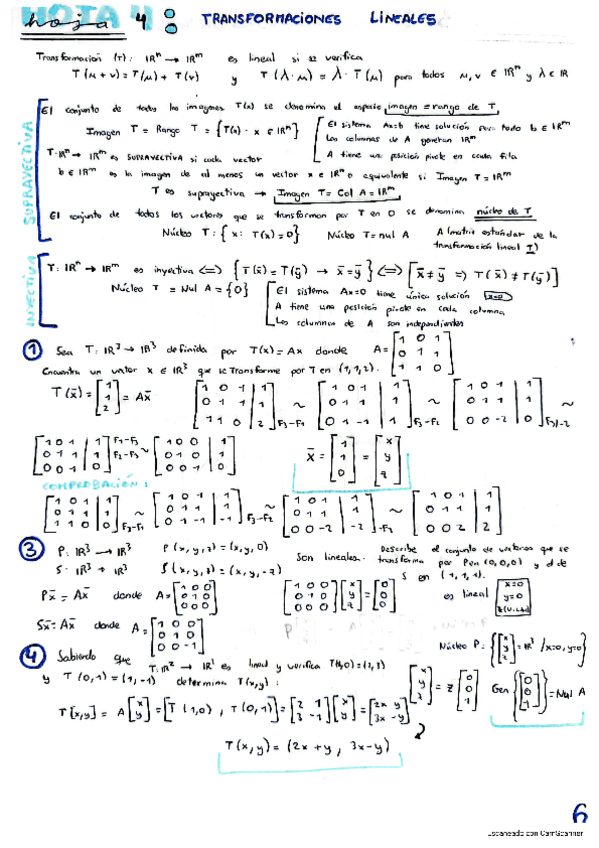 HOJA 4
hoja 4: TRANSFORMACIONES LINEALES
Transformación (T): IRⁿ → IRᵐ es lineal si se verifica
T(u+v) = T(u) + T(v) y T(λ·u) = λ·T(u) para todos u, v ∈ IRⁿ y λ ∈ IR
SUPRAYECTIVA
El conjunto de todas las imagenes T(x) se denomina el espacio imagen = rango de T.
Imagen T = Rango T = {T(x) · x ∈ IRⁿ}
El sistema Ax=b tiene solución para todo b ∈ IRᵐ
Las columnas de A generan IRᵐ
A tiene un posición pivote en cada fila
T: IRⁿ → IRᵐ es SUPRAYECTIVA si cada vector
b ∈ IRᵐ es la imagen de al menos un vector x ∈ IRⁿ o equivalente si Imagen T = IRᵐ
T es suprayectiva → Imagen T = Col A = IRᵐ
El conjunto de todos los vectores que se transforman por T en 0 se denomina núcleo de T
Núcleo T: {x: T(x) = 0} Núcleo T = nul A A (matriz estándar de la
transformación lineal T)
INYECTIVA
T: IRⁿ → IRᵐ es inyectiva <=> {T(x̄) = T(ȳ) → x̄ = ȳ} <=> [x̄ ≠ ȳ => T(x̄) ≠ T(ȳ)]
Núcleo T = Nul A = {0}
El sistema Ax=0 tiene única solución x=0
A tiene una posición pivote en cada columna
Las columnas de A son independientes
1 Sea T: IR³ → IR³ definida por T(x) = Ax donde A = [1 0 1 / 0 1 1 / 1 1 0]
Encuentra un vector x ∈ IR³ que se transforme por T en (1,1,2).
T(x̄) = [1 / 1 / 2] = Ax̄ [1 0 1 | 1 / 0 1 1 | 1 / 1 1 0 | 2] F3-F1 ~ [1 0 1 | 1 / 0 1 1 | 1 / 0 1 -1 | 1] F3-F2 ~ [1 0 1 | 1 / 0 1 1 | 1 / 0 0 -2 | 0] F3/-2 ~
[1 0 1 | 1 / 0 1 1 | 1 / 0 0 1 | 0] F1-F3 F2-F3 ~ [1 0 0 | 1 / 0 1 0 | 1 / 0 0 1 | 0] x̄ = [1 / 1 / 0] = [x / y / z]
COMPROBACIÓN:
3 P: IR³ → IR³ P(x,y,z) = (x,y,0)
S: IR³ → IR³ S(x,y,z) = (x,y,-z)
Son lineales. Describe el conjunto de vectores que se
transforma por P en (0,0,0) y el de
S en (1,1,1).
Px̄ = Ax̄ donde A = [1 0 0 / 0 1 0 / 0 0 0] [1 0 0 / 0 1 0 / 0 0 0] [x / y / z] = [0 / 0 / 0] es lineal x=0 y=0
Sx̄ = Ax̄ donde A = [1 0 0 / 0 1 0 / 0 0 -1]
Núcleo P = {[x / y / z] = IR³ / x=0, y=0}
[x / y / z] = z [0 / 0 / 1] Gen {[0 / 0 / 1]} = Nul A
4 Sabiendo que T: IR² → es lineal y verifica
y T(0,1) = (1,-1) determina T(x,y):
T[x,y] = A [x / y] = [T(1,0), T(0,1)] = [2 1 / 3 -1] [x / y] = [2x y / 3x -y]
T(x,y) = (2x+y, 3x-y)
6
Escaneado con CamScanner